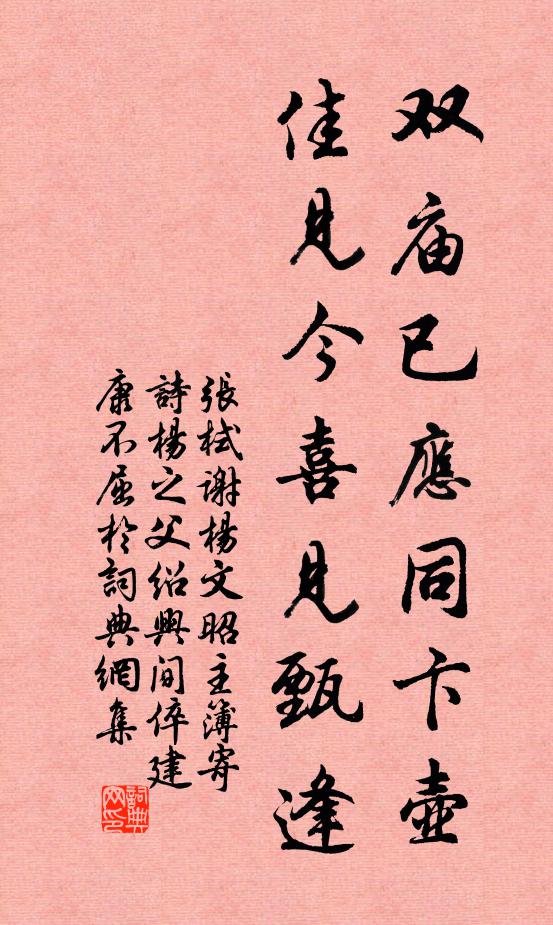 双庙已應同卞壺
佳見今喜見甄逢
張栻謝楊文昭主簿寄
詩楊之父紹興间倅建
康不屈於詞典網集
詞典网印